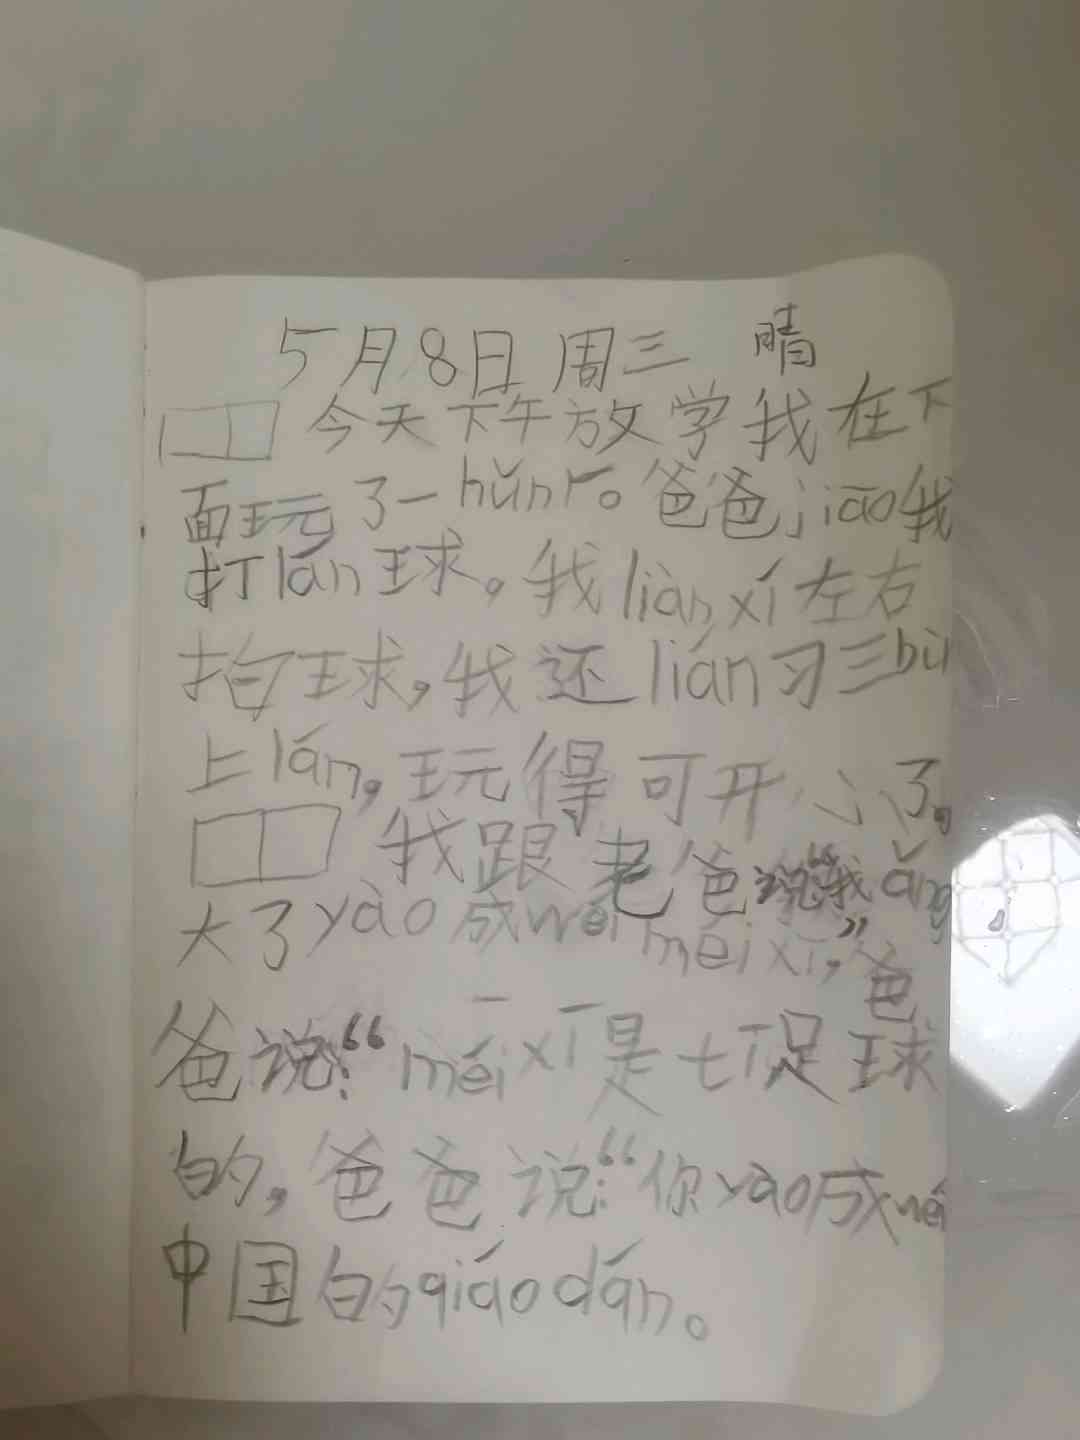 5月8日 周三 晴
今天下午放学我在下
面玩了一hǔnr。爸爸jiāo我
打lán球。我liànxí左右
拍球，我还lián习三bù
上lán，玩得可开心了。
我跟老爸说“我ǎng
大了yào成wéi méixī，”爸
爸说：“méixī是七T足球
的，爸爸说：“你yào成wéi
中国的qiáodán。